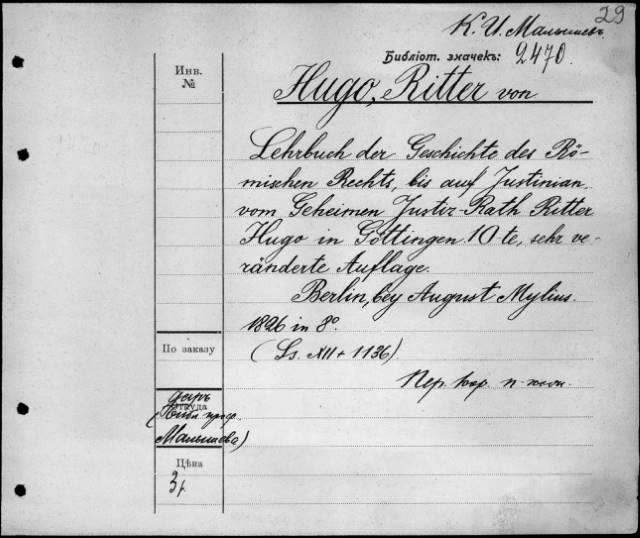 29
К. И. Малышевъ.
Библіот. значекъ: 2470.
Инв.
№
Hugo, Ritter von
Lehrbuch der Geschichte des Rö-
mischen Rechts, bis auf Justinian.
vom Geheimen Justiz-Rath Ritter
Hugo in Göttingen. 10-te, sehr ve-
ränderte Auflage.
Berlin, bey August Mylius.
1826 in 8º.
По заказу
(Ss. XII + 1136).
Пер. кор. п. кож.
даръ
Откуда
(Библ. проф.
Малышева)
Цѣна
3 р.